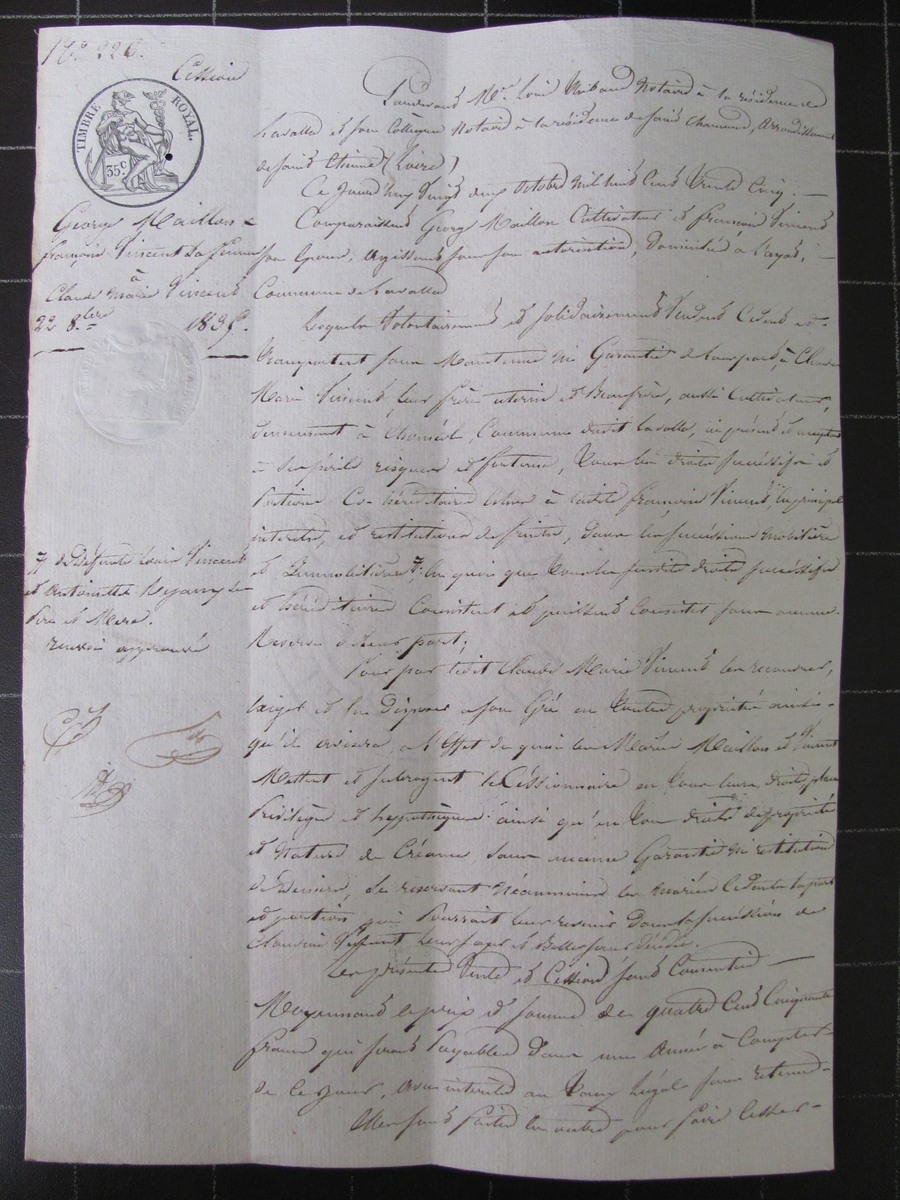 Cession
TIMBRE ROYAL.
35 c
George Maillon
françoise Vincent Sa femme
à
Claude Marie Vincent
22 8.bre 1835.
de Défunts Louis Vincent
et Antoinette
Père et Mère.
renvoi approuvé
Pardevant Me Louis Notaire à la résidence de
Lavalla et son Collègue Notaire à la résidence de Saint Chamond, Arrondissement
de Saint Etienne (Loire)
Ce Jourd'huy Vingt deux Octobre Mil huit Cent Trente Cinq.
Comparaissent George Maillon Cultivateur et françoise Vincent
son Epouse, Agissant sous son autorisation, Domiciliés à
Commune de Lavalla
Lesquels Volontairement et solidairement Vendent Cèdent et
transportent sans Maintenue ni Garantie de leur part, à Claude
Marie Vincent, leur frère et Beaufrère, aussi Cultivateur,
demeurant à Commune dudit Lavalla, ici présent et acceptant
à ses périls risques et fortune, Tous les droits successifs et
Portions Co-héréditaires échus à ladite françoise Vincent, en principal
intérêts, et restitutions de fruits, dans les successions Mobilière
et Immobilière En quoi que Tous les susdits droits successifs
et héréditaires Consistent et puissent Consister sans aucune
Réserve à leur part;
Pour par ledit Claude Marie Vincent les recouvrer,
exiger et en Disposer à son Gré en Toute propriété ainsi
qu'il avisera, à l'effet de quoi les Mariés Maillon et Vincent
Mettent et subrogent le Cessionnaire en Tous leurs droits place
Privilège et hypothèque ainsi qu'en Tous droits de propriété
et Nature de Créance, Sans aucune Garantie ni restitution
de deniers, Se réservant Néanmoins les mariés Cédants la part
et portion qui Pourrait leur revenir dans la succession de
Vincent leur et Belle sœur
Les présentes Vente et Cession sont Consenties
Moyennant le prix et somme de quatre Cent Cinquante
francs qui seront payables Dans une Année à Compter
de Ce jour, Avec intérêts au Taux Légal sans retenue
Elles sont faites en outre pour faire Cesser